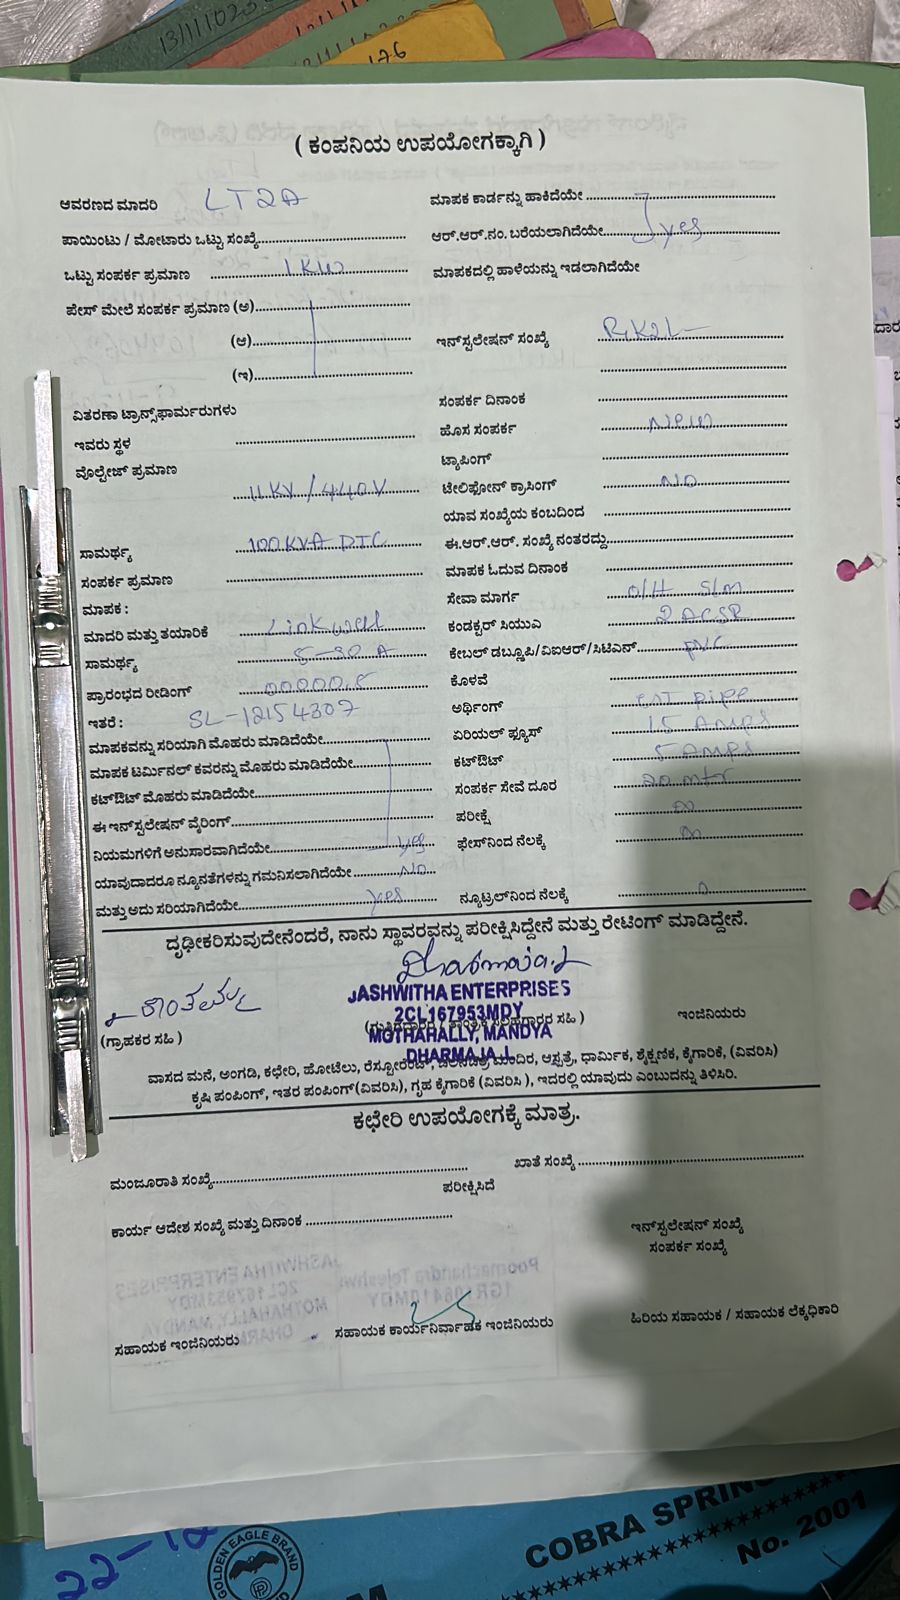 13/11/1023
176
( ಕಂಪನಿಯ ಉಪಯೋಗಕ್ಕಾಗಿ )
ಆವರಣದ ಮಾದರಿ LT2A
ಮಾಪಕ ಕಾರ್ಡನ್ನು ಹಾಕಿದೆಯೇ
ಪಾಯಿಂಟು / ಮೋಟಾರು ಒಟ್ಟು ಸಂಖ್ಯೆ
ಆರ್.ಆರ್.ನಂ. ಬರೆಯಲಾಗಿದೆಯೇ yes
ಒಟ್ಟು ಸಂಪರ್ಕ ಪ್ರಮಾಣ 1 KW
ಮಾಪಕದಲ್ಲಿ ಹಾಳೆಯನ್ನು ಇಡಲಾಗಿದೆಯೇ
ಪೇಸ್ ಮೇಲೆ ಸಂಪರ್ಕ ಪ್ರಮಾಣ (ಅ)
(ಆ)
ಇನ್‌ಸ್ಪಲೇಷನ್ ಸಂಖ್ಯೆ
(ಇ)
ವಿತರಣಾ ಟ್ರಾನ್ಸ್‌ಫಾರ್ಮರುಗಳು
ಸಂಪರ್ಕ ದಿನಾಂಕ
ಇವರು ಸ್ಥಳ
ಹೊಸ ಸಂಪರ್ಕ New
ವೊಲ್ಟೇಜ್ ಪ್ರಮಾಣ
ಟ್ಯಾಪಿಂಗ್
11 KV / 440 V
ಟೇಲಿಫೋನ್ ಕ್ರಾಸಿಂಗ್ NO
ಯಾವ ಸಂಖ್ಯೆಯ ಕಂಬದಿಂದ
ಸಾಮರ್ಥ್ಯ 100 KVA DTC
ಈ.ಆರ್.ಆರ್. ಸಂಖ್ಯೆ ನಂತರದ್ದು
ಸಂಪರ್ಕ ಪ್ರಮಾಣ
ಮಾಪಕ ಓದುವ ದಿನಾಂಕ
ಮಾಪಕ :
ಸೇವಾ ಮಾರ್ಗ O/H S/m
ಮಾದರಿ ಮತ್ತು ತಯಾರಿಕೆ Linkwell
ಕಂಡಕ್ಟರ್ ಸಿಯುಎ 2 ACSR
ಸಾಮರ್ಥ್ಯ 5-30 A
ಕೇಬಲ್ ಡಬ್ಲ್ಯೂಪಿ/ವಿಐಆರ್/ಸಿಟಿಎನ್ PVC
ಪ್ರಾರಂಭದ ರೀಡಿಂಗ್ 00000.5
ಕೊಳವೆ
ಇತರೆ : SL-12154307
ಅರ್ಥಿಂಗ್ pipe
ಮಾಪಕವನ್ನು ಸರಿಯಾಗಿ ಮೊಹರು ಮಾಡಿದೆಯೇ
ಏರಿಯಲ್ ಫ್ಯೂಸ್ 15 Amps
ಮಾಪಕ ಟರ್ಮಿನಲ್ ಕವರನ್ನು ಮೊಹರು ಮಾಡಿದೆಯೇ
ಕಟ್‌ಔಟ್ 5 Amps
ಕಟ್‌ಔಟ್ ಮೊಹರು ಮಾಡಿದೆಯೇ
ಸಂಪರ್ಕ ಸೇವೆ ದೂರ 20 mtr
ಈ ಇನ್‌ಸ್ಪಲೇಷನ್ ವೈರಿಂಗ್
ಪರೀಕ್ಷೆ
ನಿಯಮಗಳಿಗೆ ಅನುಸಾರವಾಗಿದೆಯೇ yes
ಫೇಸ್‌ನಿಂದ ನೆಲಕ್ಕೆ
ಯಾವುದಾದರೂ ನ್ಯೂನತೆಗಳನ್ನು ಗಮನಿಸಲಾಗಿದೆಯೇ NO
ಮತ್ತು ಅದು ಸರಿಯಾಗಿದೆಯೇ yes
ನ್ಯೂಟ್ರಲ್‌ನಿಂದ ನೆಲಕ್ಕೆ
ದೃಢೀಕರಿಸುವುದೇನೆಂದರೆ, ನಾನು ಸ್ಥಾವರವನ್ನು ಪರೀಕ್ಷಿಸಿದ್ದೇನೆ ಮತ್ತು ರೇಟಿಂಗ್ ಮಾಡಿದ್ದೇನೆ.
Dharmaja.L
JASHWITHA ENTERPRISES
2CL167953MDY
(ಗ್ರಾಹಕರ ಸಹಿ ) ಸಹಿ ) ಇಂಜಿನಿಯರು
MOTHAHALLY, MANDYA
DHARMAJA L
ವಾಸದ ಮನೆ, ಅಂಗಡಿ, ಕಛೇರಿ, ಹೋಟೆಲು, ರೆಸ್ಟೋರೆಂಟ್, ಚಲನಚಿತ್ರ ಮಂದಿರ, ಆಸ್ಪತ್ರೆ, ಧಾರ್ಮಿಕ, ಶೈಕ್ಷಣಿಕ, ಕೈಗಾರಿಕೆ, (ವಿವರಿಸಿ)
ಕೃಷಿ ಪಂಪಿಂಗ್, ಇತರ ಪಂಪಿಂಗ್ (ವಿವರಿಸಿ), ಗೃಹ ಕೈಗಾರಿಕೆ (ವಿವರಿಸಿ ), ಇದರಲ್ಲಿ ಯಾವುದು ಎಂಬುದನ್ನು ತಿಳಿಸಿರಿ.
ಕಛೇರಿ ಉಪಯೋಗಕ್ಕೆ ಮಾತ್ರ.
ಮಂಜೂರಾತಿ ಸಂಖ್ಯೆ
ಖಾತೆ ಸಂಖ್ಯೆ
ಪರೀಕ್ಷಿಸಿದೆ
ಕಾರ್ಯ ಆದೇಶ ಸಂಖ್ಯೆ ಮತ್ತು ದಿನಾಂಕ
ಇನ್‌ಸ್ಪಲೇಷನ್ ಸಂಖ್ಯೆ
ಸಂಪರ್ಕ ಸಂಖ್ಯೆ
ಸಹಾಯಕ ಇಂಜಿನಿಯರು
ಸಹಾಯಕ ಕಾರ್ಯನಿರ್ವಾಹಕ ಇಂಜಿನಿಯರು
ಹಿರಿಯ ಸಹಾಯಕ / ಸಹಾಯಕ ಲೆಕ್ಕಧಿಕಾರಿ
GOLDEN EAGLE BRAND
COBRA SPRING
No. 2001